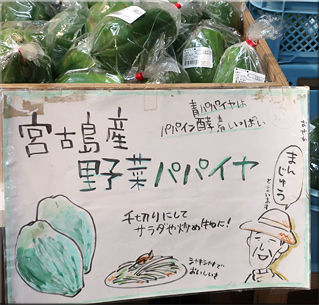 宮古島産
野菜パパイヤ
青パパイヤは
パパイン酵素いっぱい
千切りにして
サラダや炒め物に!
シャキシャキで
おいしいよ
まんじゅう